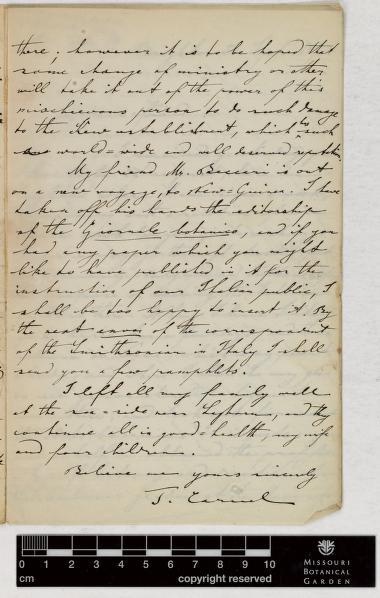 there; however it is to be hoped that
some change of ministry or other
will take it out of the power of this
mischievous person to do such damage
to the Kew establishment, which has such
world-wide and well deserved reputation.
My friend Mr. Beccari is out
on a new voyage, to New-Guinea. I have
taken off his hands the editorship
of the Giornale botanico, and if you
had any paper which you might
like to have published in it for the
instruction of our Italian public, I
shall be too happy to insert it. By
the next envoi of the correspondent
of the Smithsonian in Italy I shall
send you a few pamphlets.
I left all my family well
at the sea-side near Leghorn, and they
continue all in good-health, my wife
and four children.
Believe me yours sincerely
T. Caruel
0 1 2 3 4 5 6 7 8 9 10
cm copyright reserved
MISSOURI
BOTANICAL
GARDEN